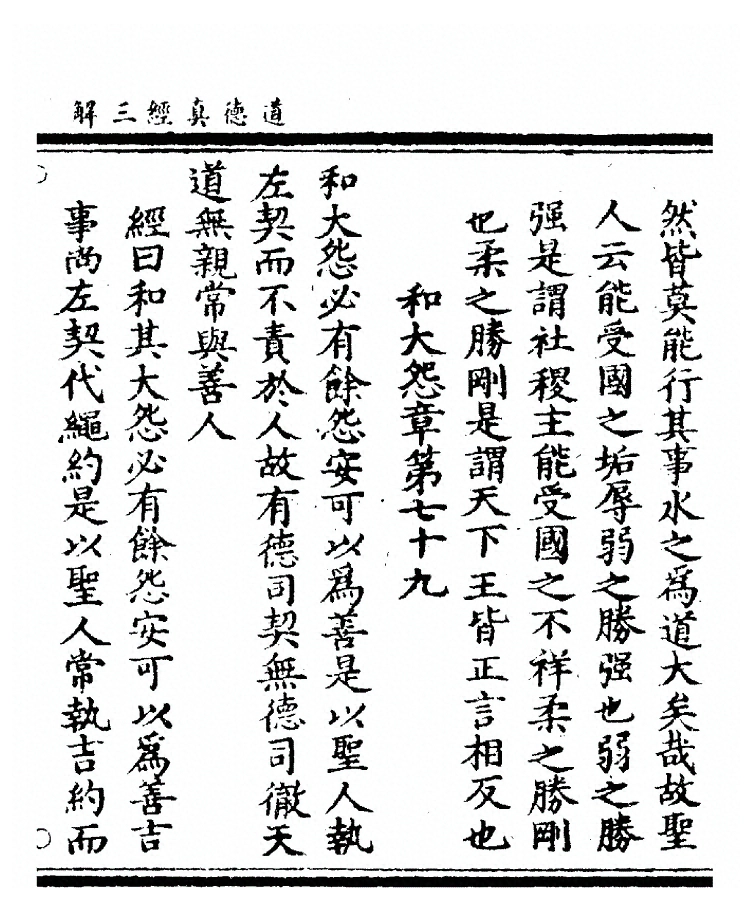 道德真經三解
然皆莫能行其事水之爲道大矣哉故聖
人云能受國之垢辱弱之勝强也弱之勝
强是謂社稷主能受國之不祥柔之勝剛
也柔之勝剛是謂天下王皆正言相反也
和大怨章第七十九
和大怨必有餘怨安可以爲善是以聖人執
左契而不責於人故有德司契無德司徹天
道無親常與善人
經曰和其大怨必有餘怨安可以爲善吉
事尚左契代繩約是以聖人常執吉約而